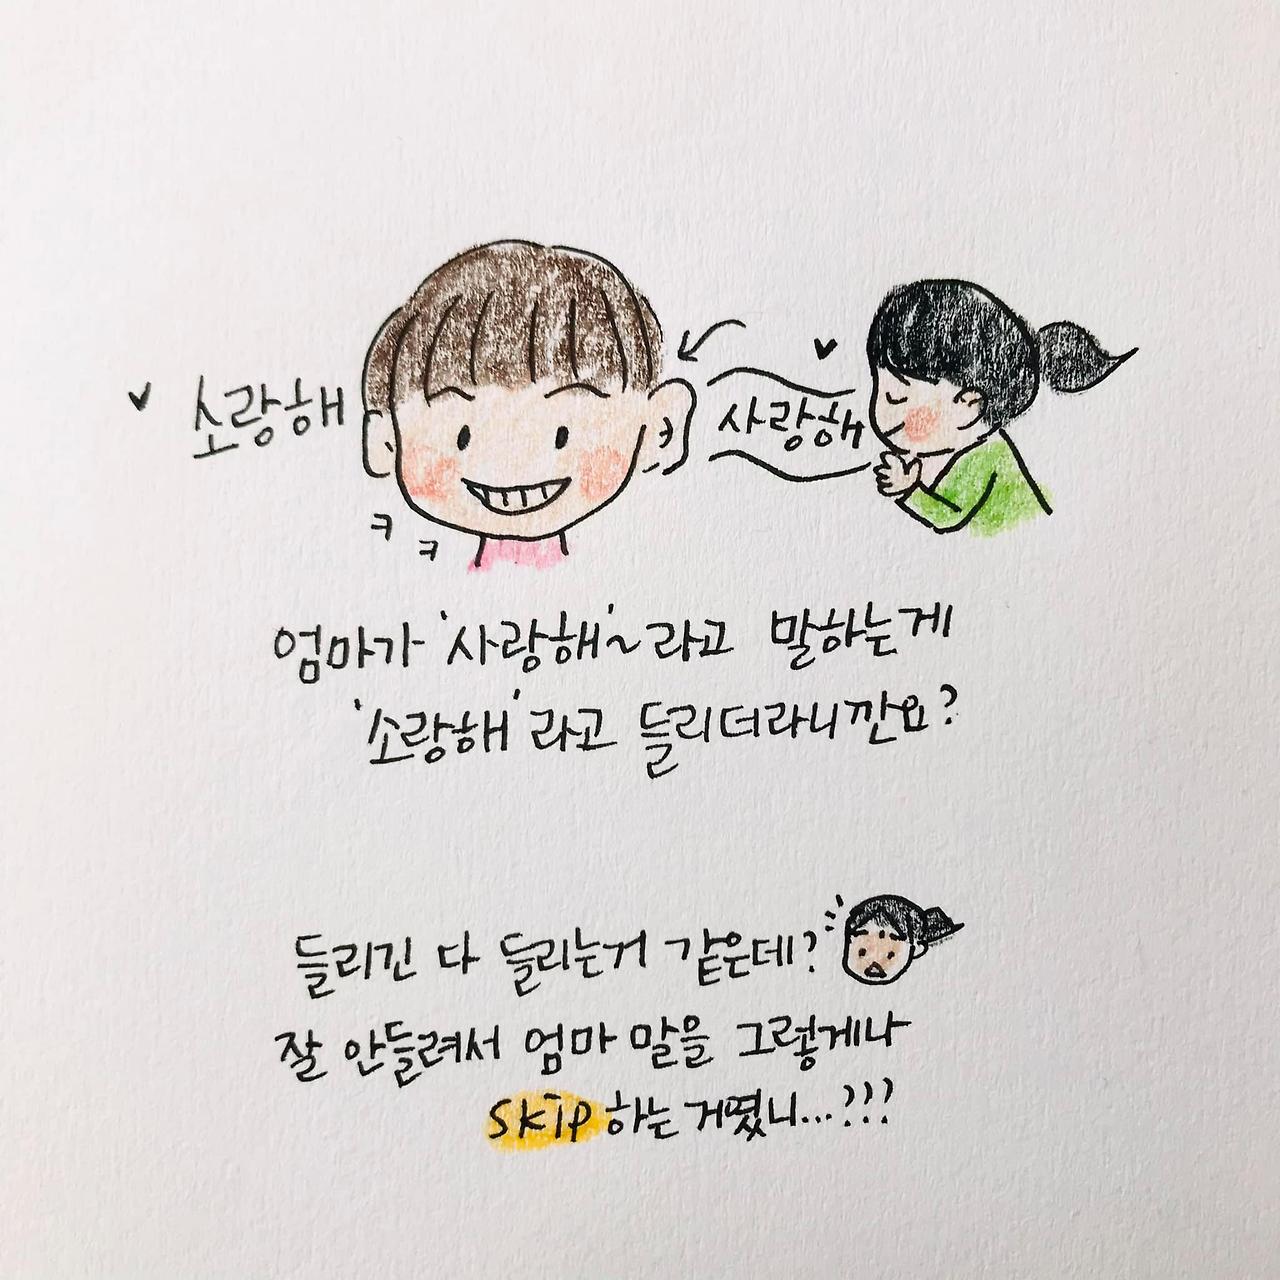 소랑해
사랑해
ㅋ
ㅋ
엄마가 '사랑해'~라고 말하는게
'소랑해'라고 들리더라니깐요?
들리긴 다 들리는거 같은데?
잘 안들려서 엄마 말을 그렇게나
skip 하는 거였니...???